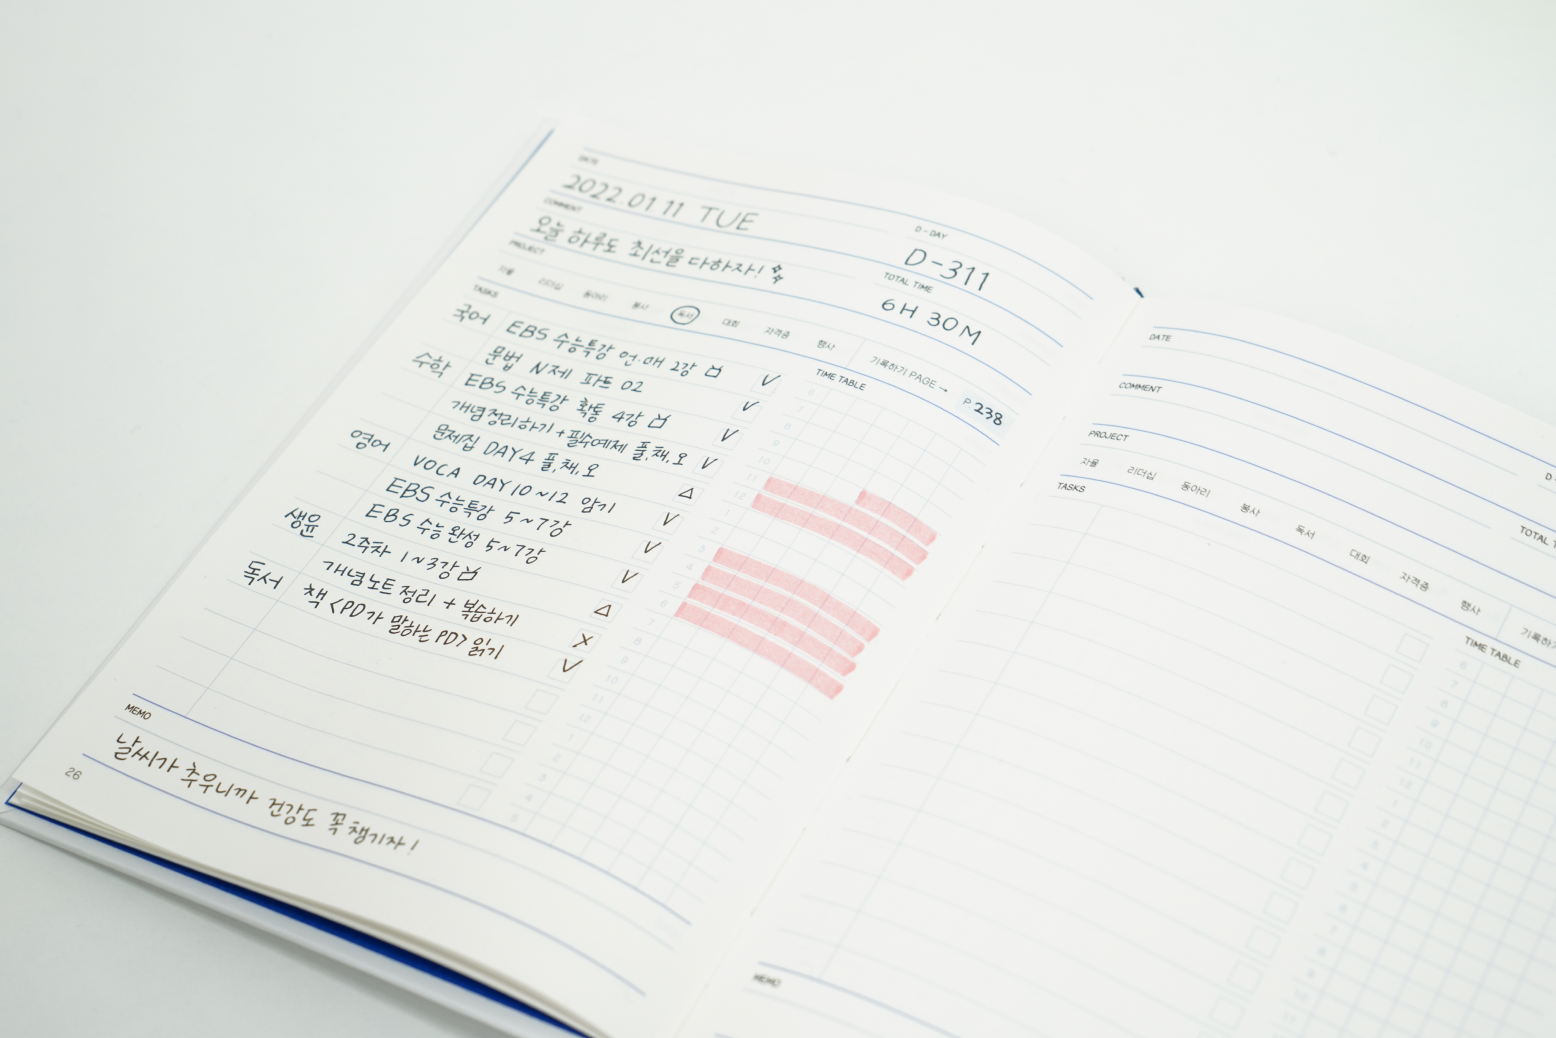 DATE
2022.01.11 TUE
D-DAY
D-311
COMMENT
오늘 하루도 최선을 다하자!
TOTAL TIME
6H 30M
PROJECT
자율 리더십 동아리 봉사 독서 대회 자격증 행사
기록하기 PAGE → P.238
TASKS
TIME TABLE
국어 EBS 수능특강 언.매 2강 V
문법 N제 파트 02 V
수학 EBS 수능특강 확통 4강 V
개념정리하기+필수예제 풀,채,오 V
문제집 DAY4 풀,채,오 △
영어 VOCA DAY10~12 암기 V
EBS 수능특강 5~7강 V
EBS 수능완성 5~7강 V
생윤 2주차 1~3강 △
개념노트정리 + 복습하기 X
독서 책 <PD가 말하는 PD> 읽기 V
MEMO
날씨가 추우니까 건강도 꼭 챙기자!
26
DATE
COMMENT
PROJECT
자율 리더십 동아리 봉사 독서 대회 자격증 행사
TASKS
TIME TABLE
MEMO